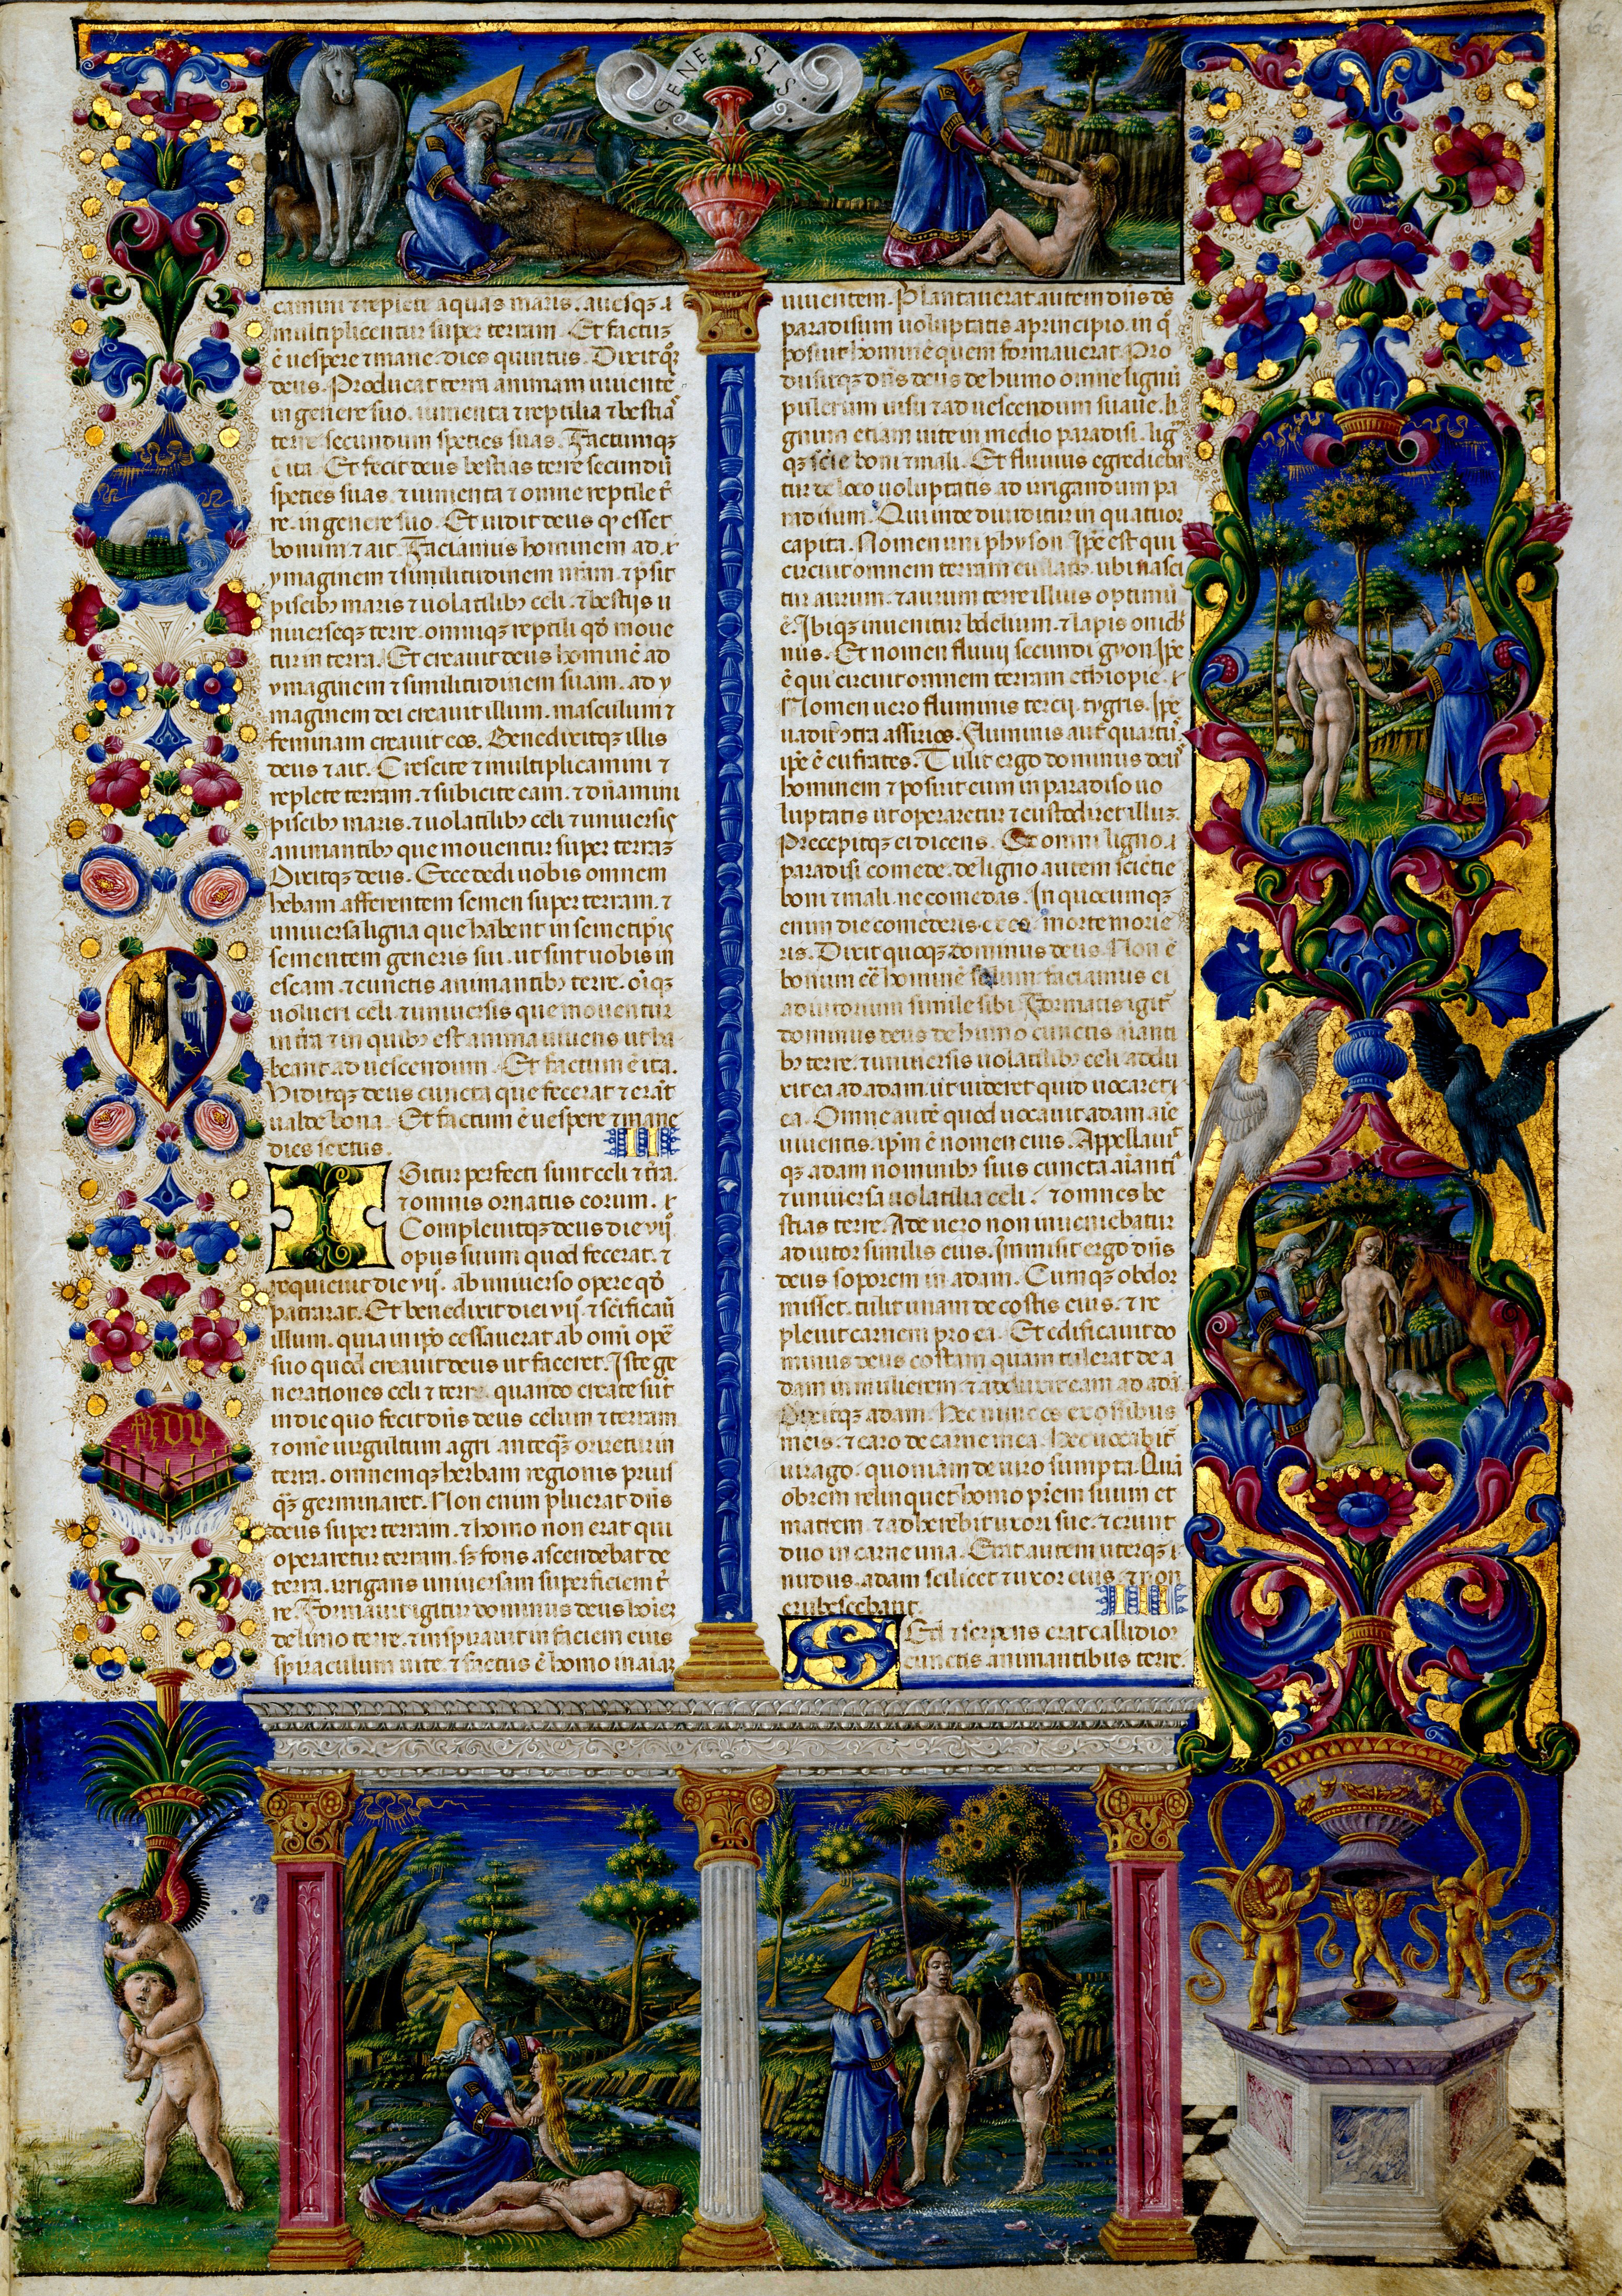 GENESIS
camini ⁊ replete aquas maris. auesqꝫ ⁊
multiplicentur super terram. Et factuꝫ
ē uespere ⁊ mane. dies quintus. Dixitqꝫ
deus. Producat terra animam uiuentē
in genere suo. iumenta ⁊ reptilia ⁊ bestias
terre secundum species suas. Factumqꝫ
ē ita. Et fecit deus bestias terre secundū
species suas. ⁊ iumenta ⁊ omne reptile t̄
re. in genere suo. Et uidit deus qꝫ esset
bonum ⁊ ait. Faciamus hominem ad
ymaginem ⁊ similitudinem nr̄am. ⁊ p̄sit
piscibꝫ maris ⁊ uolatilibꝫ celi. ⁊ bestijs u
niuerseqꝫ terre. omniqꝫ reptili qd̄ moue
tur in terra. Et creauit deus hominē ad
ymaginem ⁊ similitudinem suam. ad y
maginem dei creauit illum. masculum ⁊
feminam creauit eos. Benedixitqꝫ illis
deus ⁊ ait. Crescite ⁊ multiplicamini ⁊
replete terram. ⁊ subicite eam. ⁊ dn̄amini
piscibꝫ maris. ⁊ uolatilibꝫ celi ⁊ uniuersis
animantibꝫ que mouentur super terraꝫ
Dixitqꝫ deus. Ecce dedi uobis omnem
hebam afferentem semen super terram. ⁊
uniuersa ligna que habent in semetip̄is
sementem generis sui. ut sint uobis in
escam. ⁊ cunctis animantibꝫ terre. oīqꝫ
uolucri celi. ⁊ uniuersis que mouentur
in t̄ra ⁊ in quibꝫ est anima uiuens ut ha
beant ad uescendum. Et factum ē ita.
Uiditqꝫ deus cuncta que fecerat ⁊ erāt
ualde bona. Et factum ē uespere ⁊ mane
dies sextus.
II
Igitur perfecti sunt celi ⁊ t̄ra.
⁊ omnis ornatus eorum.
Compleuitqꝫ deus die vij
opus suum quod fecerat. ⁊
requieuit die vij. ab uniuerso opere qd̄
patrarat. Et benedixit diei vij. ⁊ sc̄ificauit
illum. quia in ip̄o cessauerat ab omī opē
suo quod creauit deus ut faceret. Iste ge
nerationes celi ⁊ terre. quando create sūt
in die quo fecit dn̄s deus celum ⁊ terram
⁊ om̄e uirgultum agri. anteqꝫ oriretur in
terra. omnemqꝫ herbam regionis prius
qꝫ germinaret. Non enim pluerat dn̄s
deus super terram. ⁊ homo non erat qui
operaretur terram. sꝫ fons ascendebat de
terra. irrigans uniuersam superficiem t̄
re. Formauit igitur dominus deus hoieꝫ
de limo terre. ⁊ inspirauit in faciem eius
spiraculum uite. ⁊ factus ē homo in aiaꝫ
uiuentem. Plantauerat autem dn̄s ds̄
paradisum uoluptatis a principio. in q̄
posuit hominē quem formauerat. Pro
duxitqꝫ dn̄s deus de humo omne lignū
pulcrum uisu ⁊ ad uescendum suaue. li
gnum etiam uite in medio paradisi. lig
qꝫ scīe boni ⁊ mali. Et fluuius egredieba
tur de loco uoluptatis ad irrigandum pa
radisum. Qui inde diuiditur in quatuor
capita. Nomen uni physon. Ip̄e est qui
circuit omnem terram euilath. ubi nasci
tur aurum. ⁊ aurum terre illius optimū
ē. Ibiqꝫ inuenitur bdelium. ⁊ lapis onich
nus. Et nomen fluuij secundi gyon. Ip̄e
ē qui circuit omnem terram ethiopie.
Nomen uero fluminis tercij. tygris. Ip̄e
uadit ꝯtra assirios. Fluuius aut̄ quartꝰ
ip̄e ē eufrates. Tulit ergo dominus deus
hominem ⁊ posuit eum in paradiso uo
luptatis ut operaretur ⁊ custodiret illuꝫ.
Precepitqꝫ ei dicens. Ex omni ligno
paradisi comede. de ligno autem scientie
boni ⁊ mali. ne comedas. In quocumqꝫ
enim die comederis ex eo. morte morie
ris. Dixit quoqꝫ dominus deus. Non ē
bonum eē hominē solum. faciamus ei
adiutorium simile sibi. Formatis igit
dominus deus de humo cunctis aianti
bꝫ terre. ⁊ uniuersis uolatilibꝫ celi addu
xit ea ad adam. ut uideret quid uocaret
ea. Omne autē quod uocauit adam aīe
uiuentis. ip̄m ē nomen eius. Appellauit
qꝫ adam nominibꝫ suis cuncta aianti
⁊ uniuersa uolatilia celi. ⁊ omnes be
stias terre. Ade uero non inueniebatur
adiutor similis eius. Immisit ergo dn̄s
deus soporem in adam. Cumqꝫ obdor
misset. tulit unam de costis eius. ⁊ re
pleuit carnem pro ea. Et edificauit do
minus deus costam quam tulerat de a
dam in mulierem. ⁊ adduxit eam ad adā
Dixitqꝫ adam. Hec nunc os ex ossibus
meis. ⁊ caro de carne mea. Hec uocabit̄
uirago. quoniam de uiro sumpta. Quā
obrem relinquet homo pr̄em suum et
matrem. ⁊ adherebit uxori sue. ⁊ erunt
duo in carne una. Erat autem uterqꝫ
nudus. adam scilicet ⁊ uxor eius. ⁊ non
erubescebant.
III
Sed ⁊ serpens erat callidior
cunctis animantibus terre.